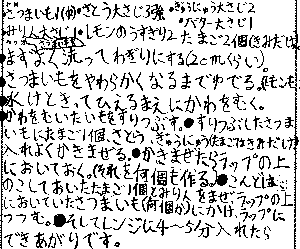 さつまいも1(中)●さとう大さじ3強 ●ぎゅうにゅう大さじ2
●バター大さじ1
みりん大さじ1●レモンのうすぎり2 たまご2個(きみだけ)
まずよく洗ってわぎりにする(2cmくらい)
さつまいもをやわらかくなるまでゆでる。(レモンも
水けときってひえるまえにかわをむく。
かわをむいたいもをすりつぶす。●すりつぶしたさつま
いもにたまご1個、さとう、ぎゅうにゅう
入れよくかきまぜる。●かきまぜたらラップの上
においておく。(それを何個も作る。)●こんどは
のこしておいたたまご1個とみりんをまぜラップの上
においていたさつまいも(何個か)にかけ、ラップに
つつむ。●そしてレンジに4〜5分入れたら
できあがりです。